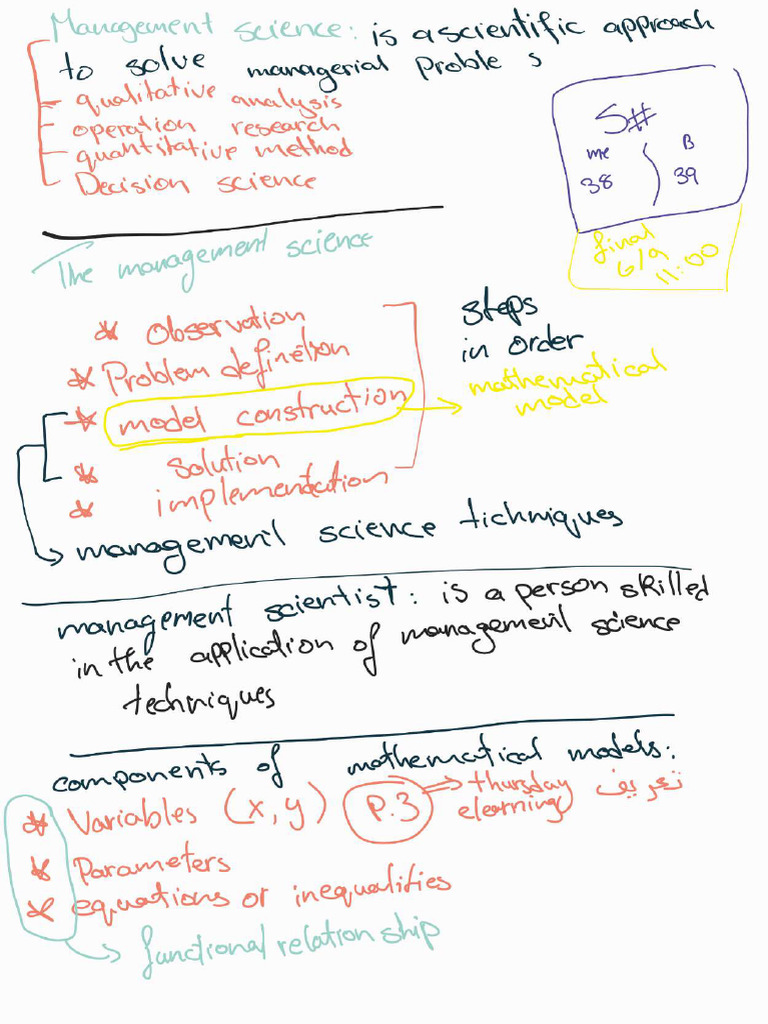 Management science: is a scientific approach
to solve managerial Proble s
qualitative analysis
operation research
quantitative method
Decision science
S#
me B
38 39
final
6/9
11:00
The management science
* Observation
* Problem definetion
* model construction
* solution
* implementation
steps
in order
mathematical
model
management science tichniques
management scientist: is a person skilled
in the application of management science
techniques
components of mathematical models:
* Variables (x, y) P.3 => thursday تعريف
elearning
* Parameters
* equations or inequalities
functional relation ship